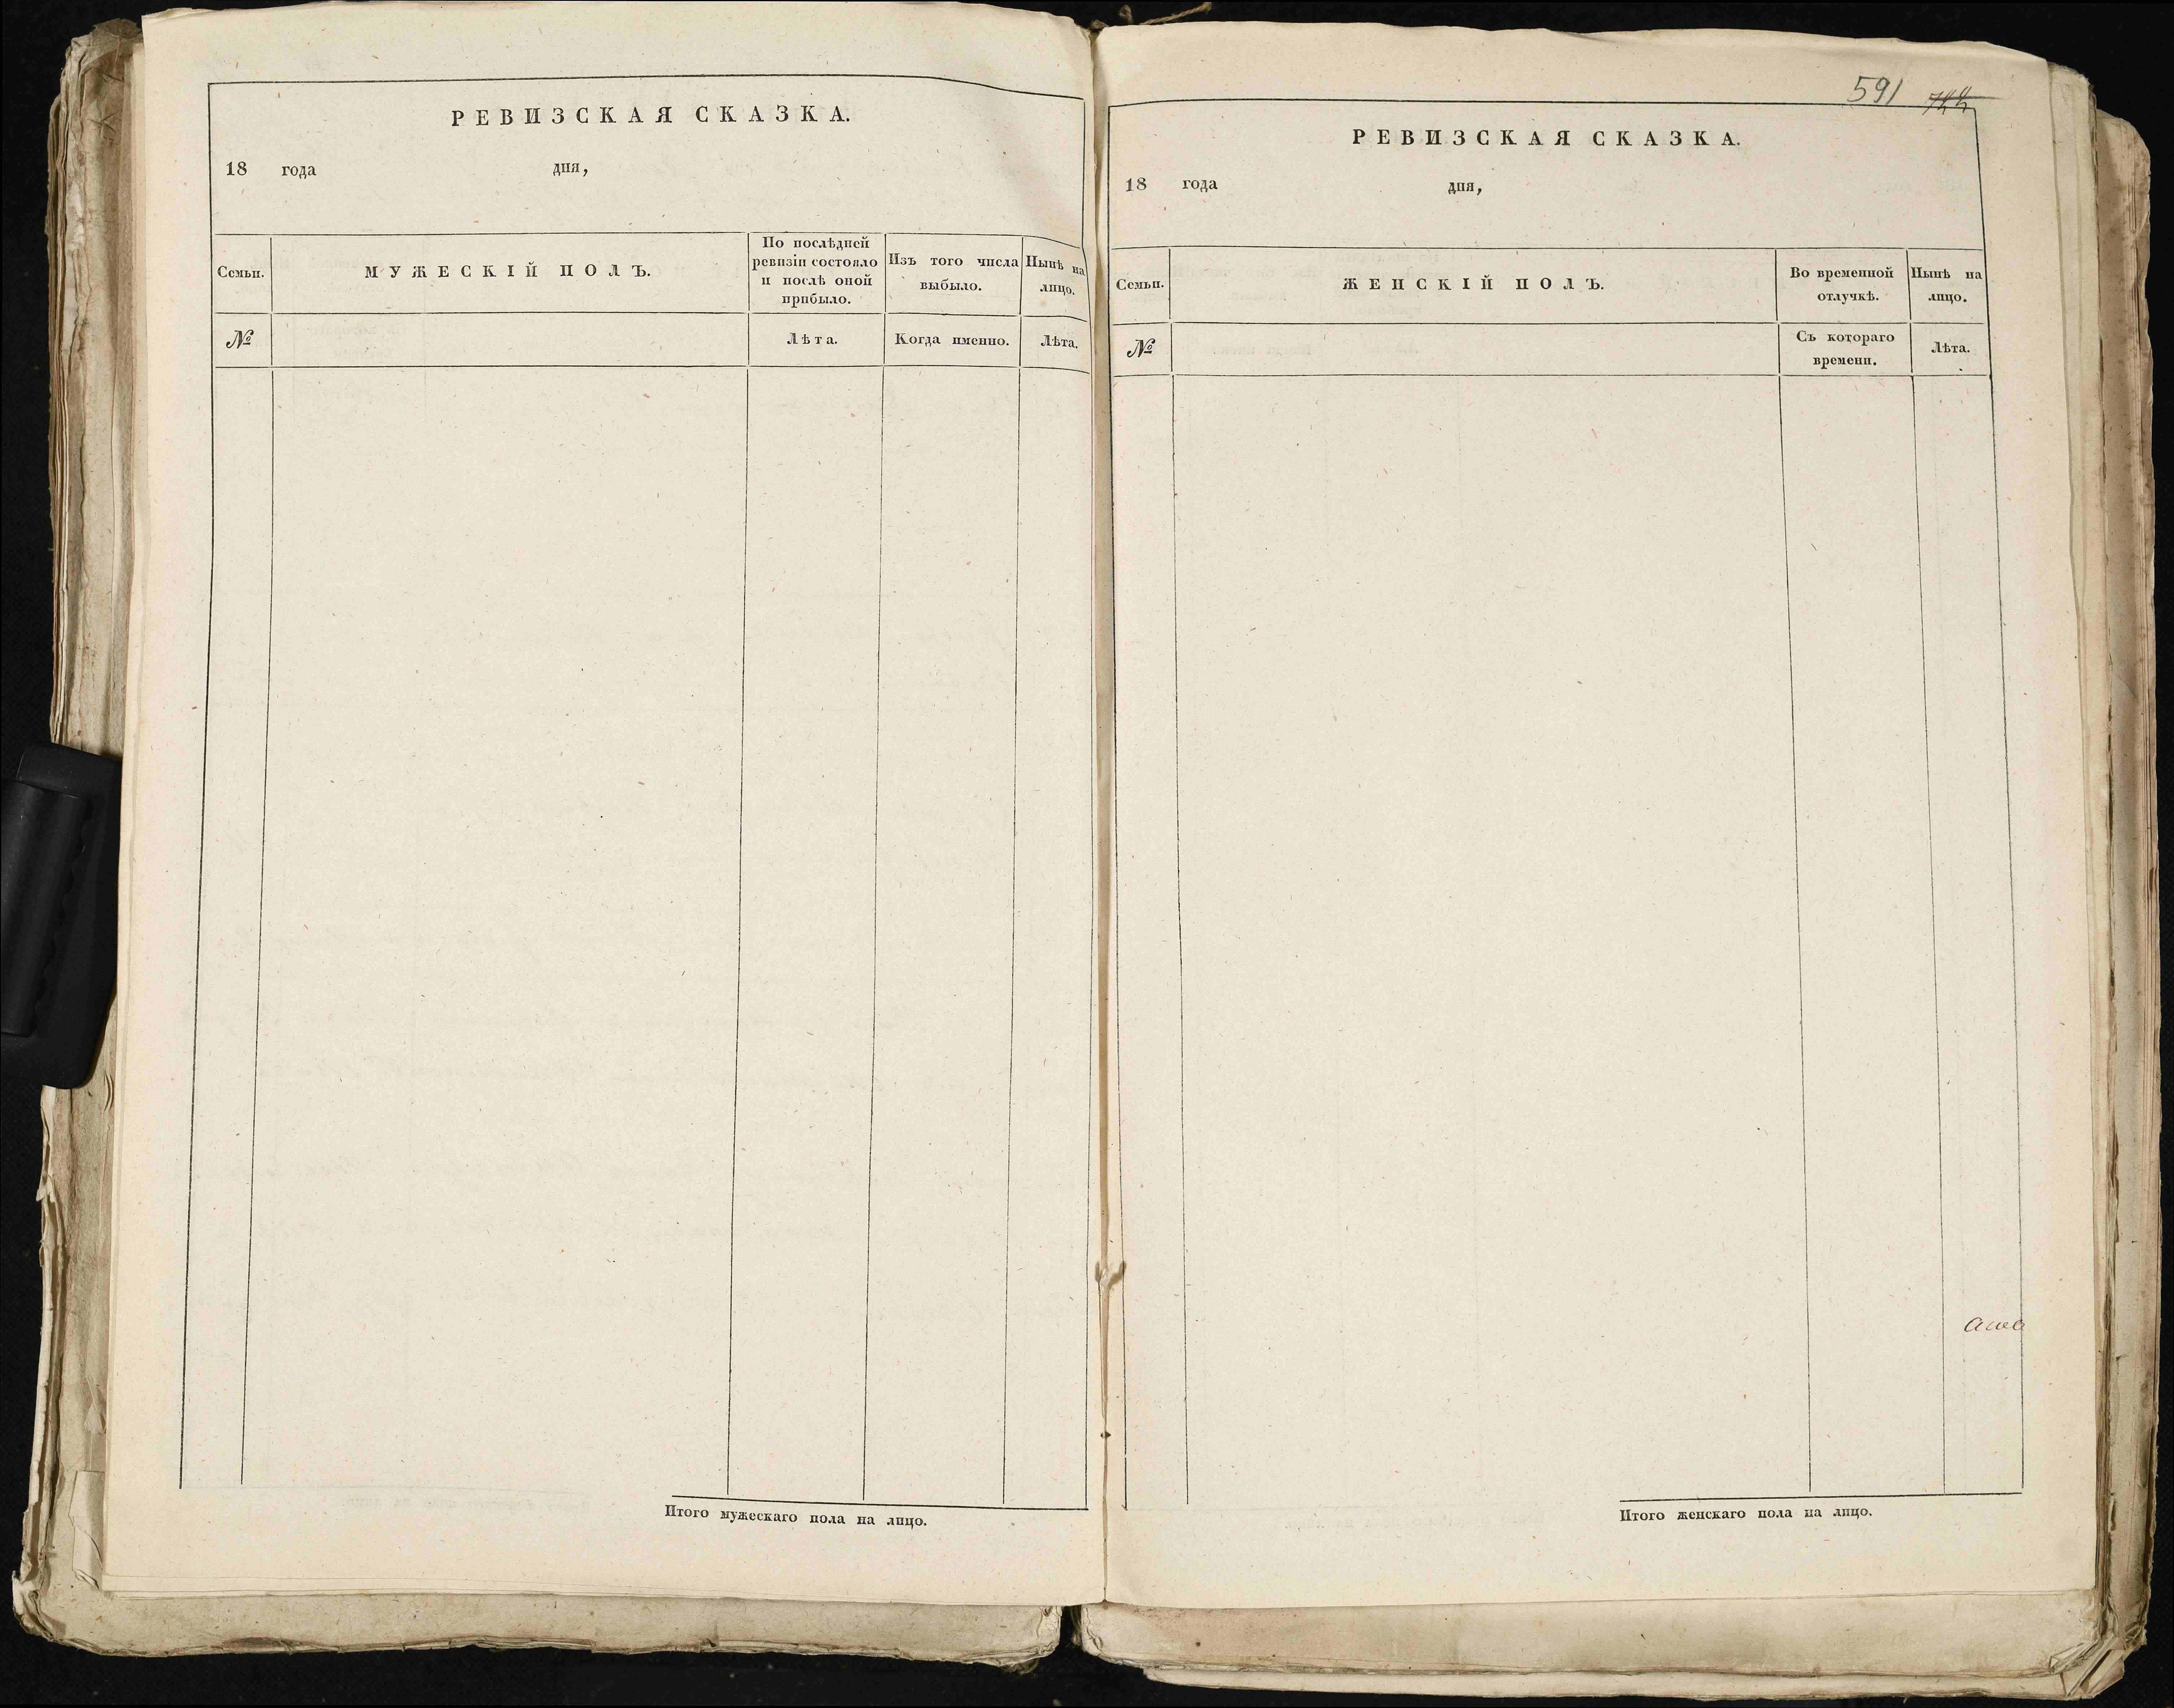 РЕВИЗСКАЯ СКАЗКА.
18 года дня,
Семьи.
МУЖЕСКІЙ ПОЛЪ.
По послѣдней
ревизіи состояло
и послѣ оной
прибыло.
Изъ того числа
выбыло.
Нынѣ на
лицо.
№
Лѣта.
Когда именно.
Лѣта.
Итого мужескаго пола на лицо.
591
РЕВИЗСКАЯ СКАЗКА.
18 года дня,
Семьи.
ЖЕНСКІЙ ПОЛЪ.
Во временной
отлучкѣ.
Нынѣ на
лицо.
№
Съ котораго
времени.
Лѣта.
Итого женскаго пола на лицо.